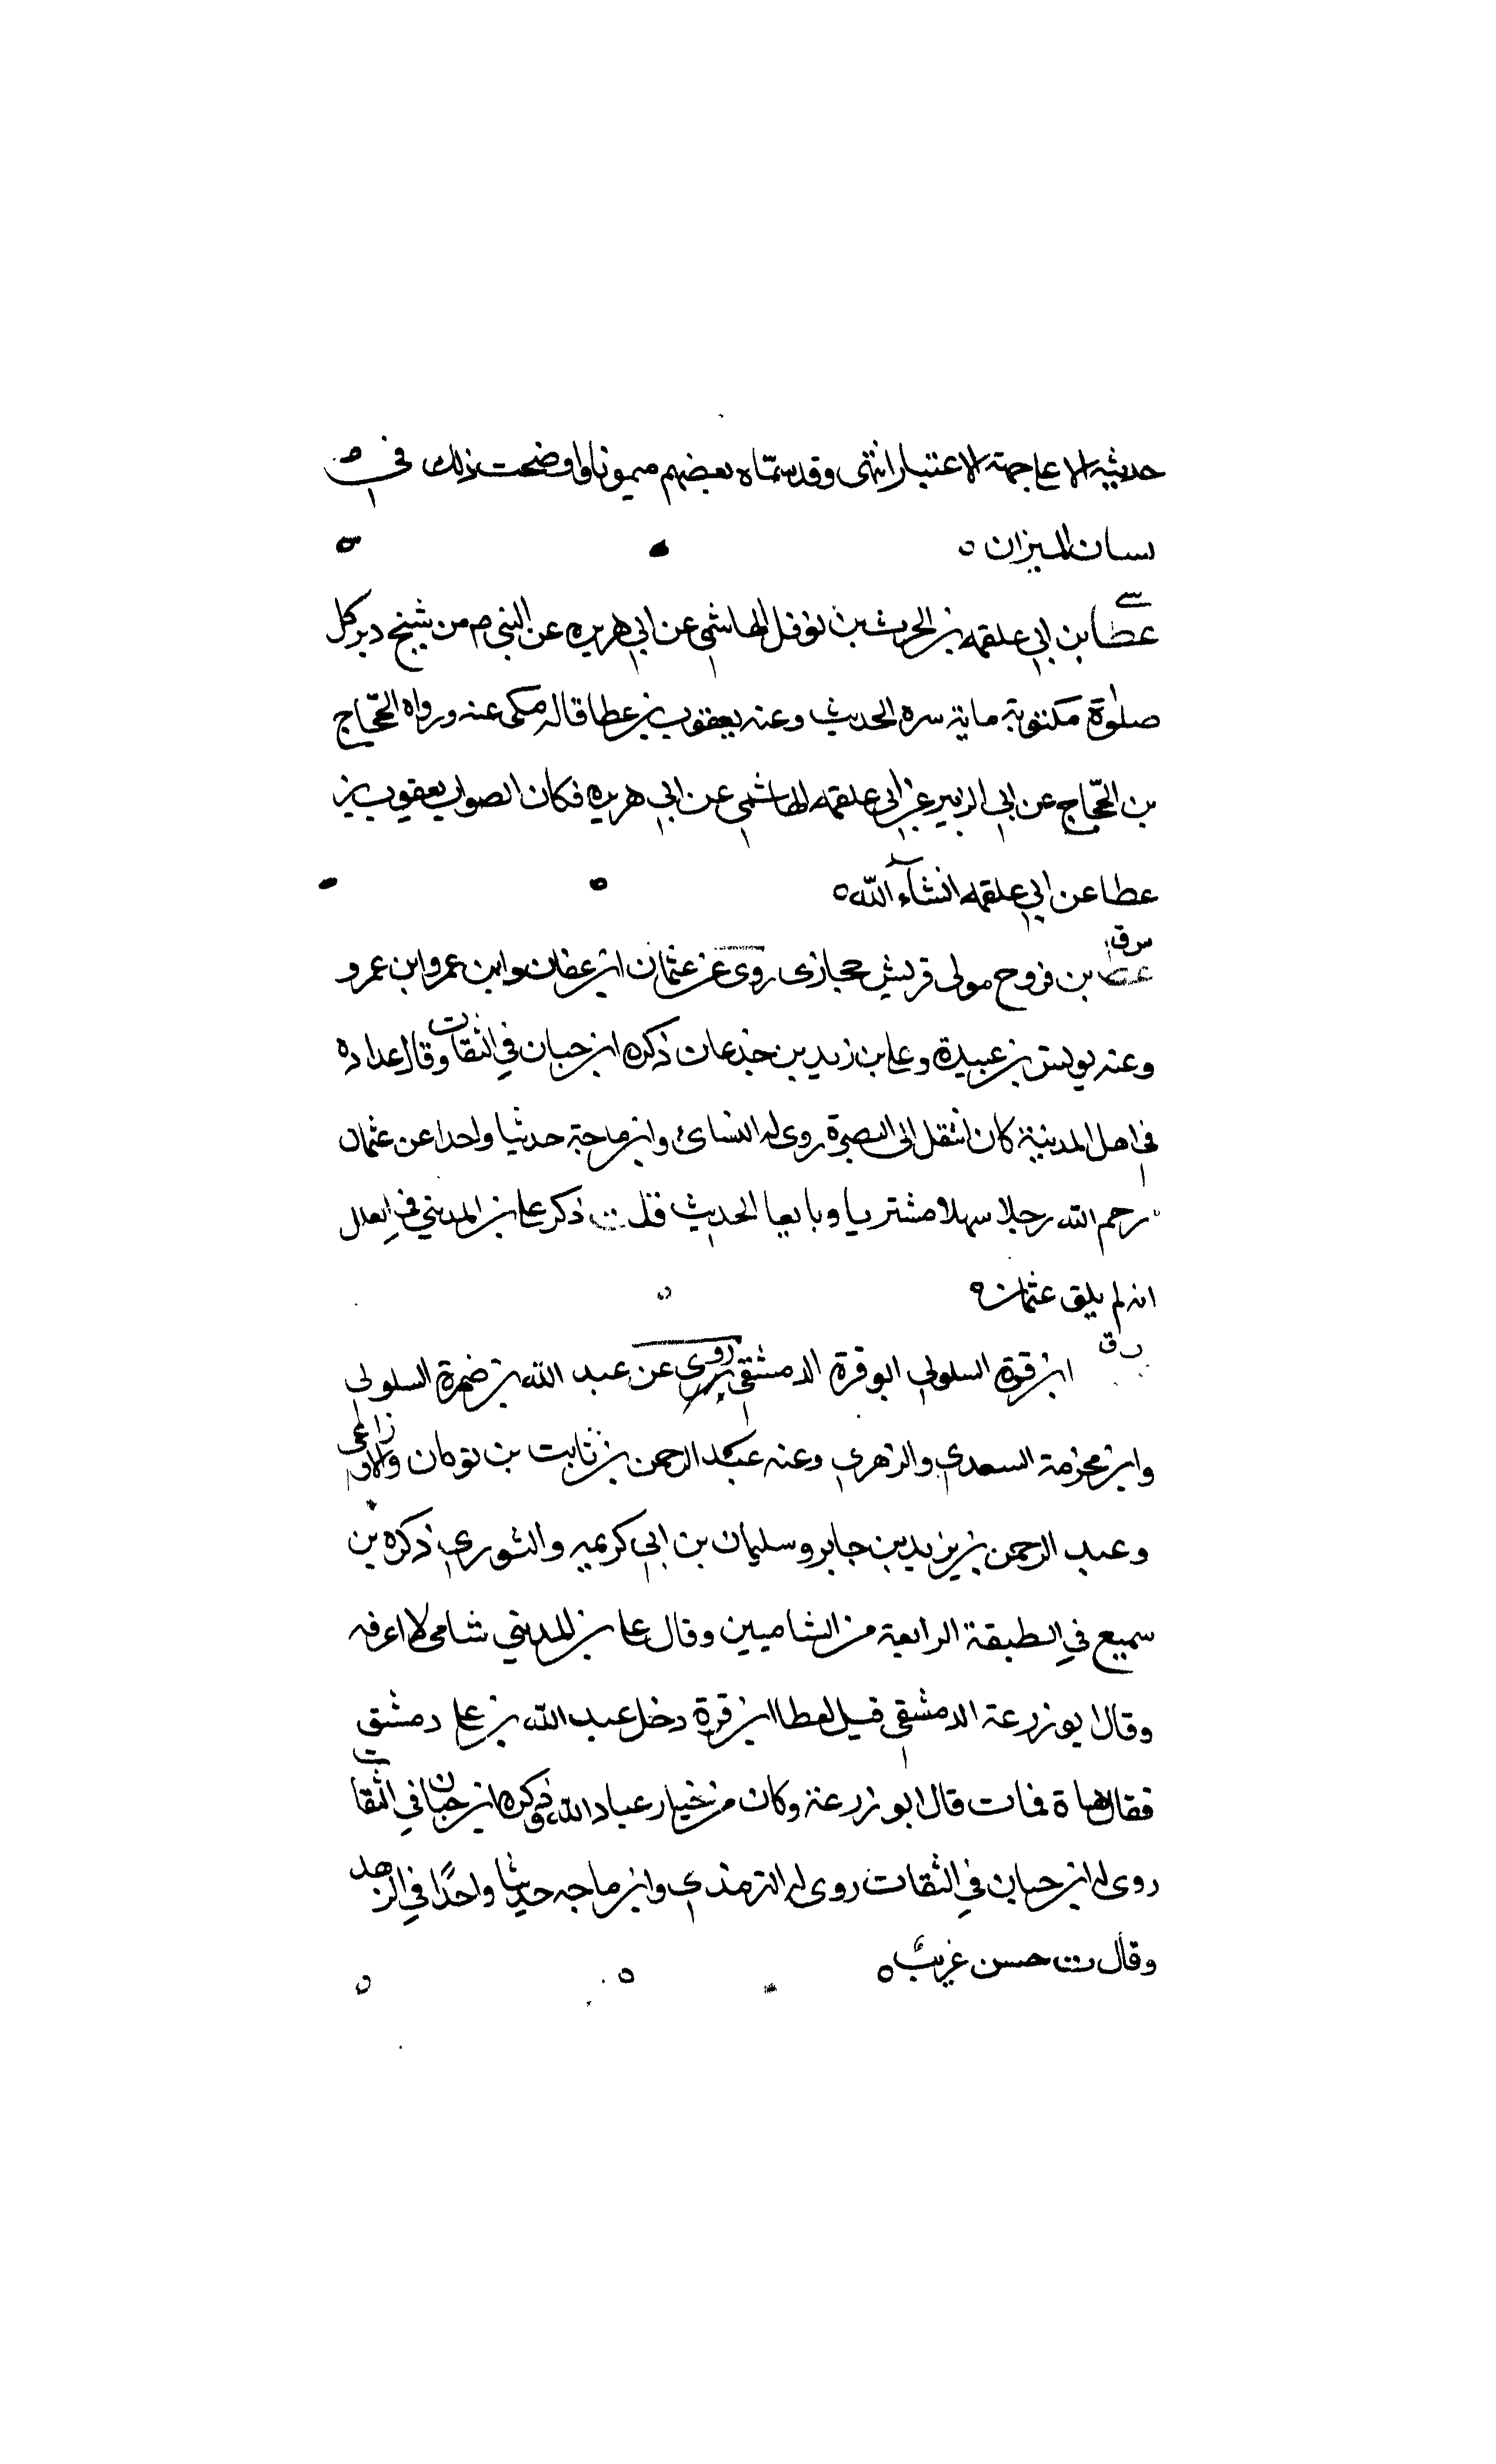 حديثه الا على جهة الاعتبار انتهى وقد سمّاه بعضهم ميمونا واوضحت ذلك في
لسان الميزان ٥
سى
عطا بن ابي علقمه بن الحرث بن نوفل الهاشمي عن ابي هريره عن النبي م من سبح دبر كل
صلوة مكتوبة ماية مره الحديث وعنه يعقوب بن عطا قاله مكى عنه ورواه الحجّاج
بن الحجّاج عن ابي الزبير عن ابي علقمه الهاشمي عن ابي هريره فكان الصواب يعقوب بن
عطا عن ابي علقمه انشآء الله ٥
س ق
عطا بن فروح مولى قريش حجازى روى عن عثمان ابن عفان وابن عمر وابن عمرو
وعنه يونس بن عبيدة وعلى بن زيد بن جذعان ذكره ابن حبان في الثقات وقال عداده
في اهل المدينة كان انتقل الى البصرة روى له النسائ وابن ماجة حديثا واحدا عن عثمان
رحم الله رجلا سهلا مشتريا وبايعا الحديث قلت ذكر على بن المديني في العلل
انه لم يلق عثمان ٥
ت ق
ابن قرة السلولي ابو قرة الدمشقي روى عن عبد الله بن ضمرة السلولي
وابن مخزمة السعدي والزهري وعنه عبد الرحمن بن ثابت بن ثوبان والاوزاعى
وعبد الرحمن بن يزيد بن جابر وسليمان بن ابي كريمه والثوري ذكره بن
سميع في الطبقة الرابعة من الشاميين وقال على بن المديني شامى لا اعرفه
وقال ابو زرعة الدمشقي قيل لعطا ابن قرة دخل عبد الله بن على دمشق
فقال هاه فمات قال ابو زرعة وكان من خيار عباد الله وذكره ابن حبان في الثقات
روى له ابن حبان في الثقات روى له الترمذي وابن ماجه حديثا واحدًا في الزهد
وقال ت حسن غريب ٥